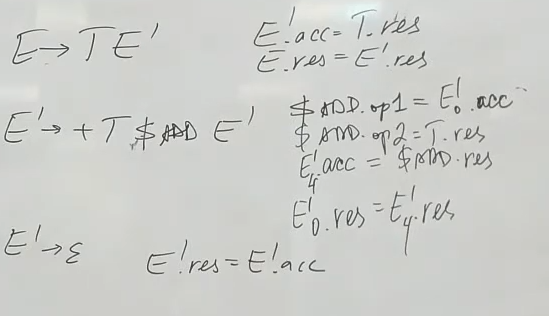 E → T E'
E'.acc = T.res
E.res = E'.res
E' → + T $ADD E'
$ADD.op1 = E'₀.acc
$ADD.op2 = T.res
E'₄.acc = $ADD.res
E'₀.res = E'₄.res
E' → ε
E'.res = E'.acc